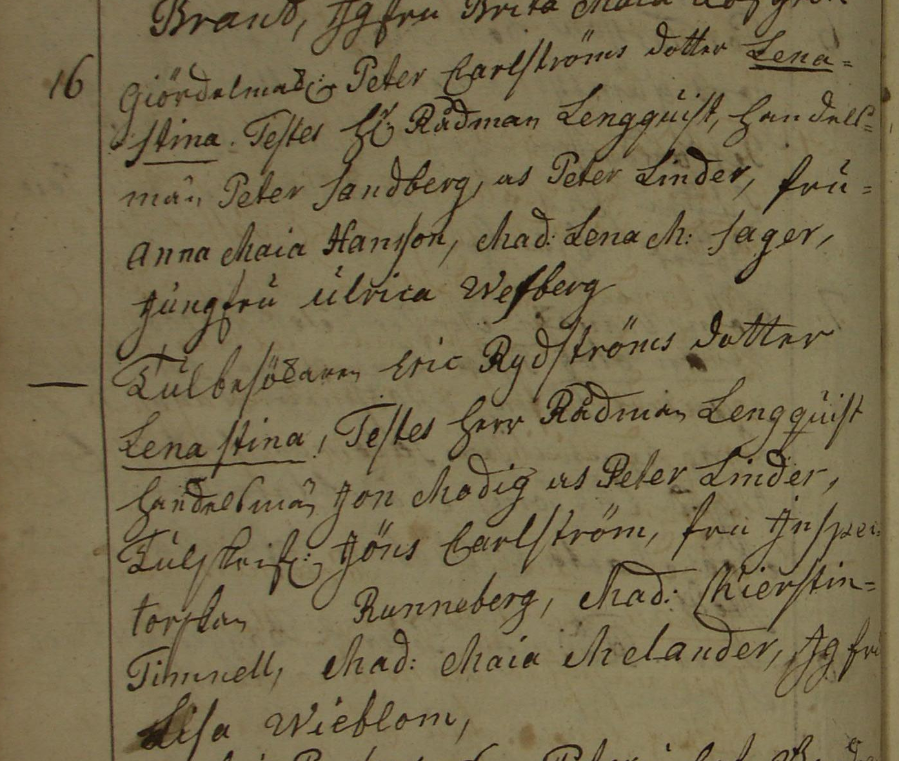 Brand, Jgfru Brita Maia
16 Giördelmak: Peter Carlströms dotter Lena=
stina. Testes Hr Rådman Lengquist, Handels=
män Peter Sandberg, us Peter Linder, fru=
Anna Maia Hansson, Mad: Lena M: Sager,
Jungfru Ulrica Wefberg
— Tulbesökaren Eric Rydströms dotter
Lena stina, Testes Herr Rådman Lengquist
Handelsmän Jon Modig us Peter Linder,
Tulskrif: Jöns Carlström, fru Inspec=
torskan Runneberg, Mad: Chierstin=
Timnell, Mad: Maia Melander, Jgfru
Lisa Wieblom,